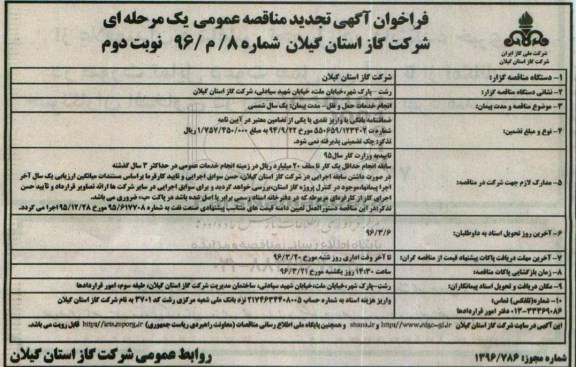 فراخوان آگهی تجدید مناقصه عمومی یک مرحله ای
شرکت گاز استان گیلان شماره ۸/ م /۹۶ نوبت دوم
شرکت ملی گاز ایران
شرکت گاز استان گیلان
۱- دستگاه مناقصه گزار: شرکت گاز استان گیلان
۲- نشانی دستگاه مناقصه گزار: رشت - پارک شهر، خیابان ملت، خیابان شهید سیادتی، شرکت گاز استان گیلان
۳- موضوع مناقصه و مدت پیمان: انجام خدمات حمل و نقل - مدت پیمان: یک سال شمسی
۴- نوع و مبلغ تضمین: ضمانتنامه بانکی یا واریز نقدی یا یکی از تضامین معتبر در آیین نامه
شماره ت ۵۵۰۶۵۹/۱۲۳۴۰۲ مورخ ۹۴/۹/۲۲ به مبلغ ۱/۷۵۷/۴۵۰/۰۰۰ ریال
تذکر: چک تضمینی پذیرفته نمی شود.
۵- مدارک لازم جهت شرکت در مناقصه: تاییدیه وزارت کار سال ۹۵
سابقه انجام حداقل یک کار تا سقف ۲۰ میلیارد ریال در زمینه انجام خدمات عمومی در حداکثر ۳ سال گذشته
در صورت داشتن سابقه اجرایی در شرکت گاز استان گیلان، حسن سوابق اجرایی و تایید کارفرما براساس مستندات میانگین ارزیابی یک سال آخر
اجرا پیمانها، موجود در کنترل پروژه گاز استان، بررسی خواهد گردید و برای سوابق اجرایی در سایر شرکت ها ارائه تصویر قرارداد و تایید حسن
اجرای کار از کارفرمای مربوطه که در دفترخانه اسناد رسمی برابر با اصل شده باشد در پاکت ضروری می باشد.
تذکر: در این مناقصه دستورالعمل تعیین دامنه قیمت های متناسب پیشنهادی صنعت نفت به شماره ۹۵/۶۱۷۷۰۸ مورخ ۹۵/۱۲/۲۸ اجرا می گردد.
۶- آخرین روز تحویل اسناد به داوطلبان: ۹۶/۳/۶
۷- آخرین مهلت دریافت پاکات پیشنهاد قیمت از مناقصه گران: تا آخر وقت اداری روز شنبه مورخ ۹۶/۳/۲۰
۸- زمان بازگشایی پاکات مناقصه: ساعت ۱۴:۳۰ روز یکشنبه مورخ ۹۶/۳/۲۱
۹- مکان دریافت و تحویل اسناد پیمانکاران: رشت - پارک شهر، خیابان ملت، خیابان شهید سیادتی، ساختمان مدیریت شرکت گاز استان گیلان، طبقه سوم، امور قراردادها
۱۰- شماره(تلفکس) تماس: ۳۳۳۶۹۰۸۶-۰۱۳ دفتر امور قراردادها واریز هزینه اسناد به شماره حساب ۲۱۷۴۶۳۴۴۰۸۰۰۵ نزد بانک ملی شعبه مرکزی رشت کد ۳۷۰۱ به نام شرکت گاز استان گیلان
این آگهی در سایت شرکت گاز استان گیلان http://www.nigc-gl.ir و shana.ir و همچنین پایگاه ملی اطلاع رسانی مناقصات (معاونت راهبردی ریاست جمهوری) http://iets.mporg.ir قابل رویت می باشد.
شماره مجوز: ۱۳۹۶/۷۸۶
روابط عمومی شرکت گاز استان گیلان